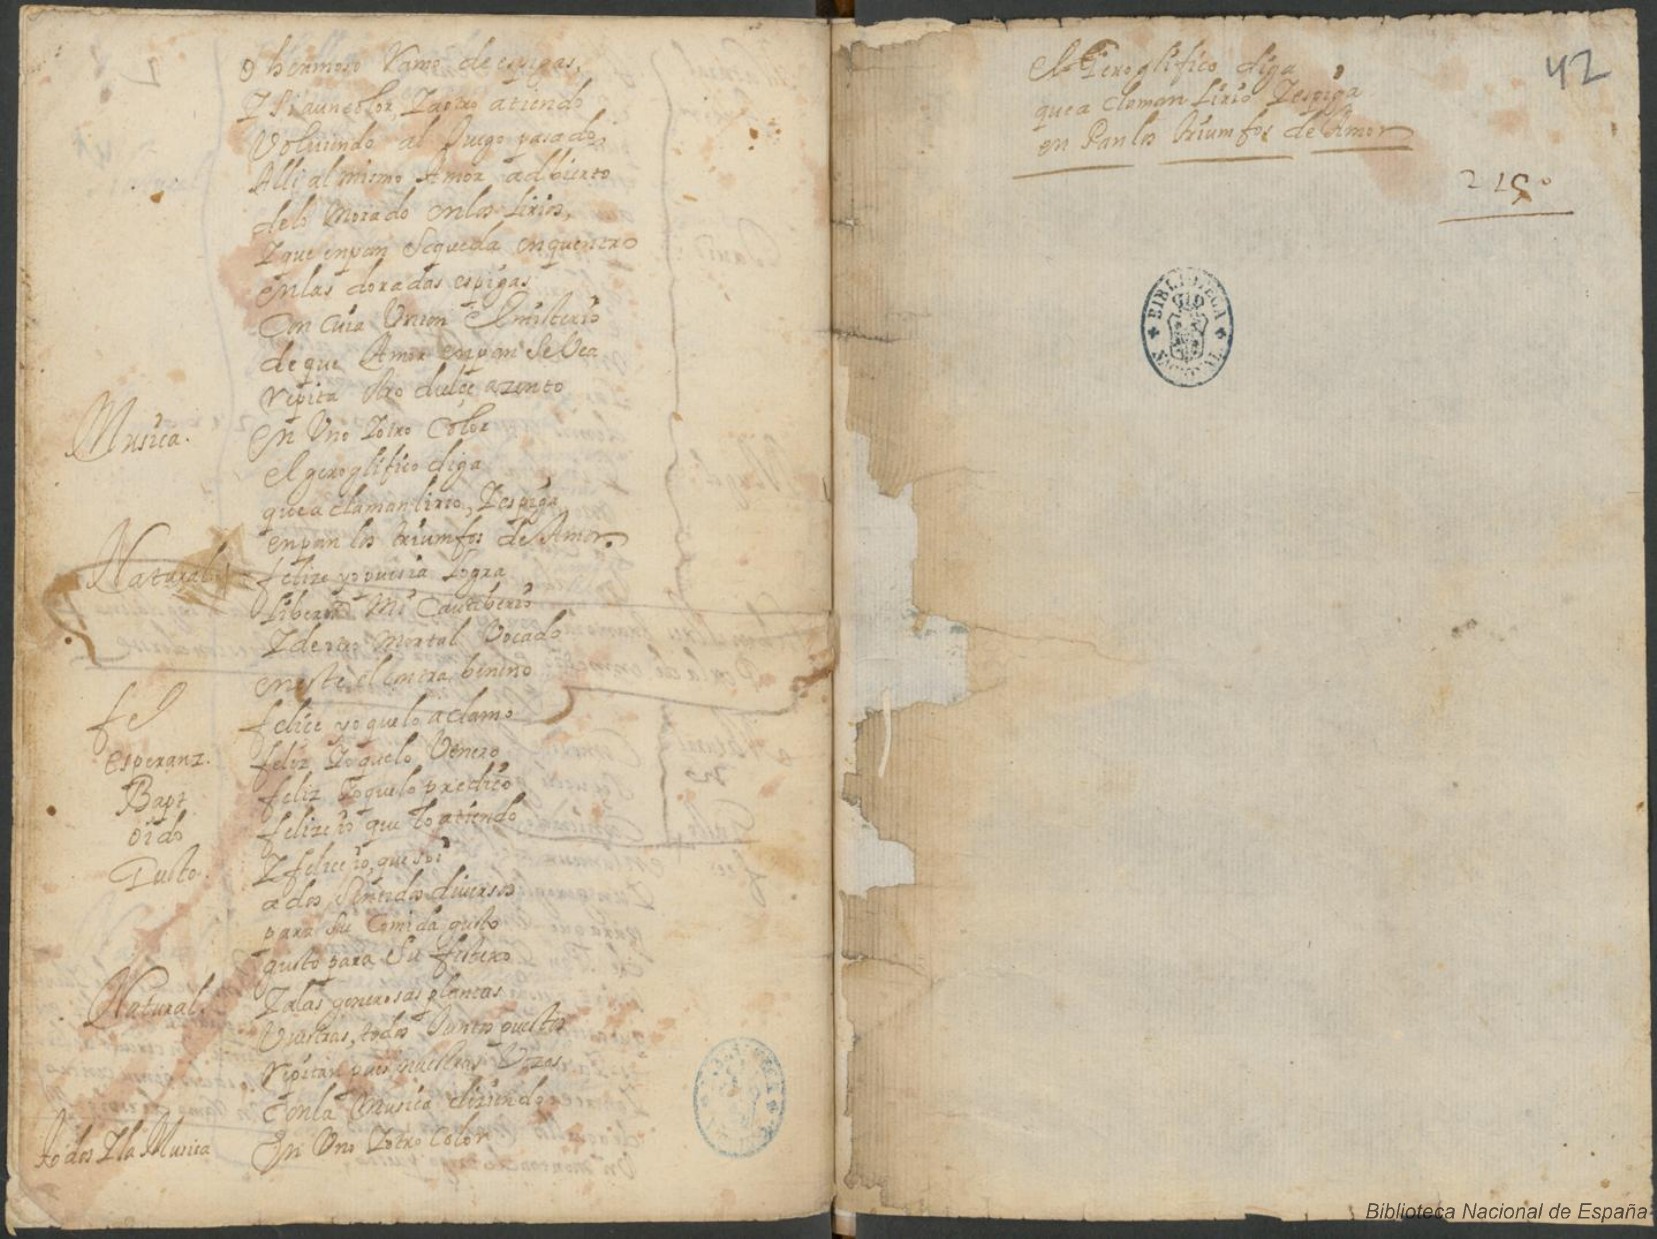 o hermoso Ramo de espigas,
Y Si a un color, Y a otro atiendo
Volviendo al Juego pasado,
Alli al mismo Amor adbierto
de lo Morado en los lirios,
Y que en pan Se queda enquentro
en las doradas espigas
Con cuia Union el misterio
de que Amor en pan Se Vea
repita otro dulçe azento
Musica.
en Uno Y otro Color
el geroglifico diga
que aclaman lirio, Y espiga
en pan los triumfos de Amor.
Natural
felize yo pues ia logra
libertad Mi Cautiberio
Y de otro Mortal Vocado
en este el
fe
felice yo que lo aclamo
Esperanz.
feliz Yo que lo Venero
Bapt
feliz Yo que lo predico
oido
felize io que lo atiendo
Gusto.
Y felice io, que soi
a dos Sentidos diversos
para Su Comida gusto
gusto para Su
Natural.
Y a las generosas plantas
Vuestras, todos Juntos puestos
repitan pues nuestras Vozes
Con la Musica diziendo
todos Y la Musica
En Uno Y otro Color
42
el Geroglifico diga
que aclaman lirio Y espiga
en Pan los triumfos de Amor
BIBLIOTECA NACIONAL
Biblioteca Nacional de España